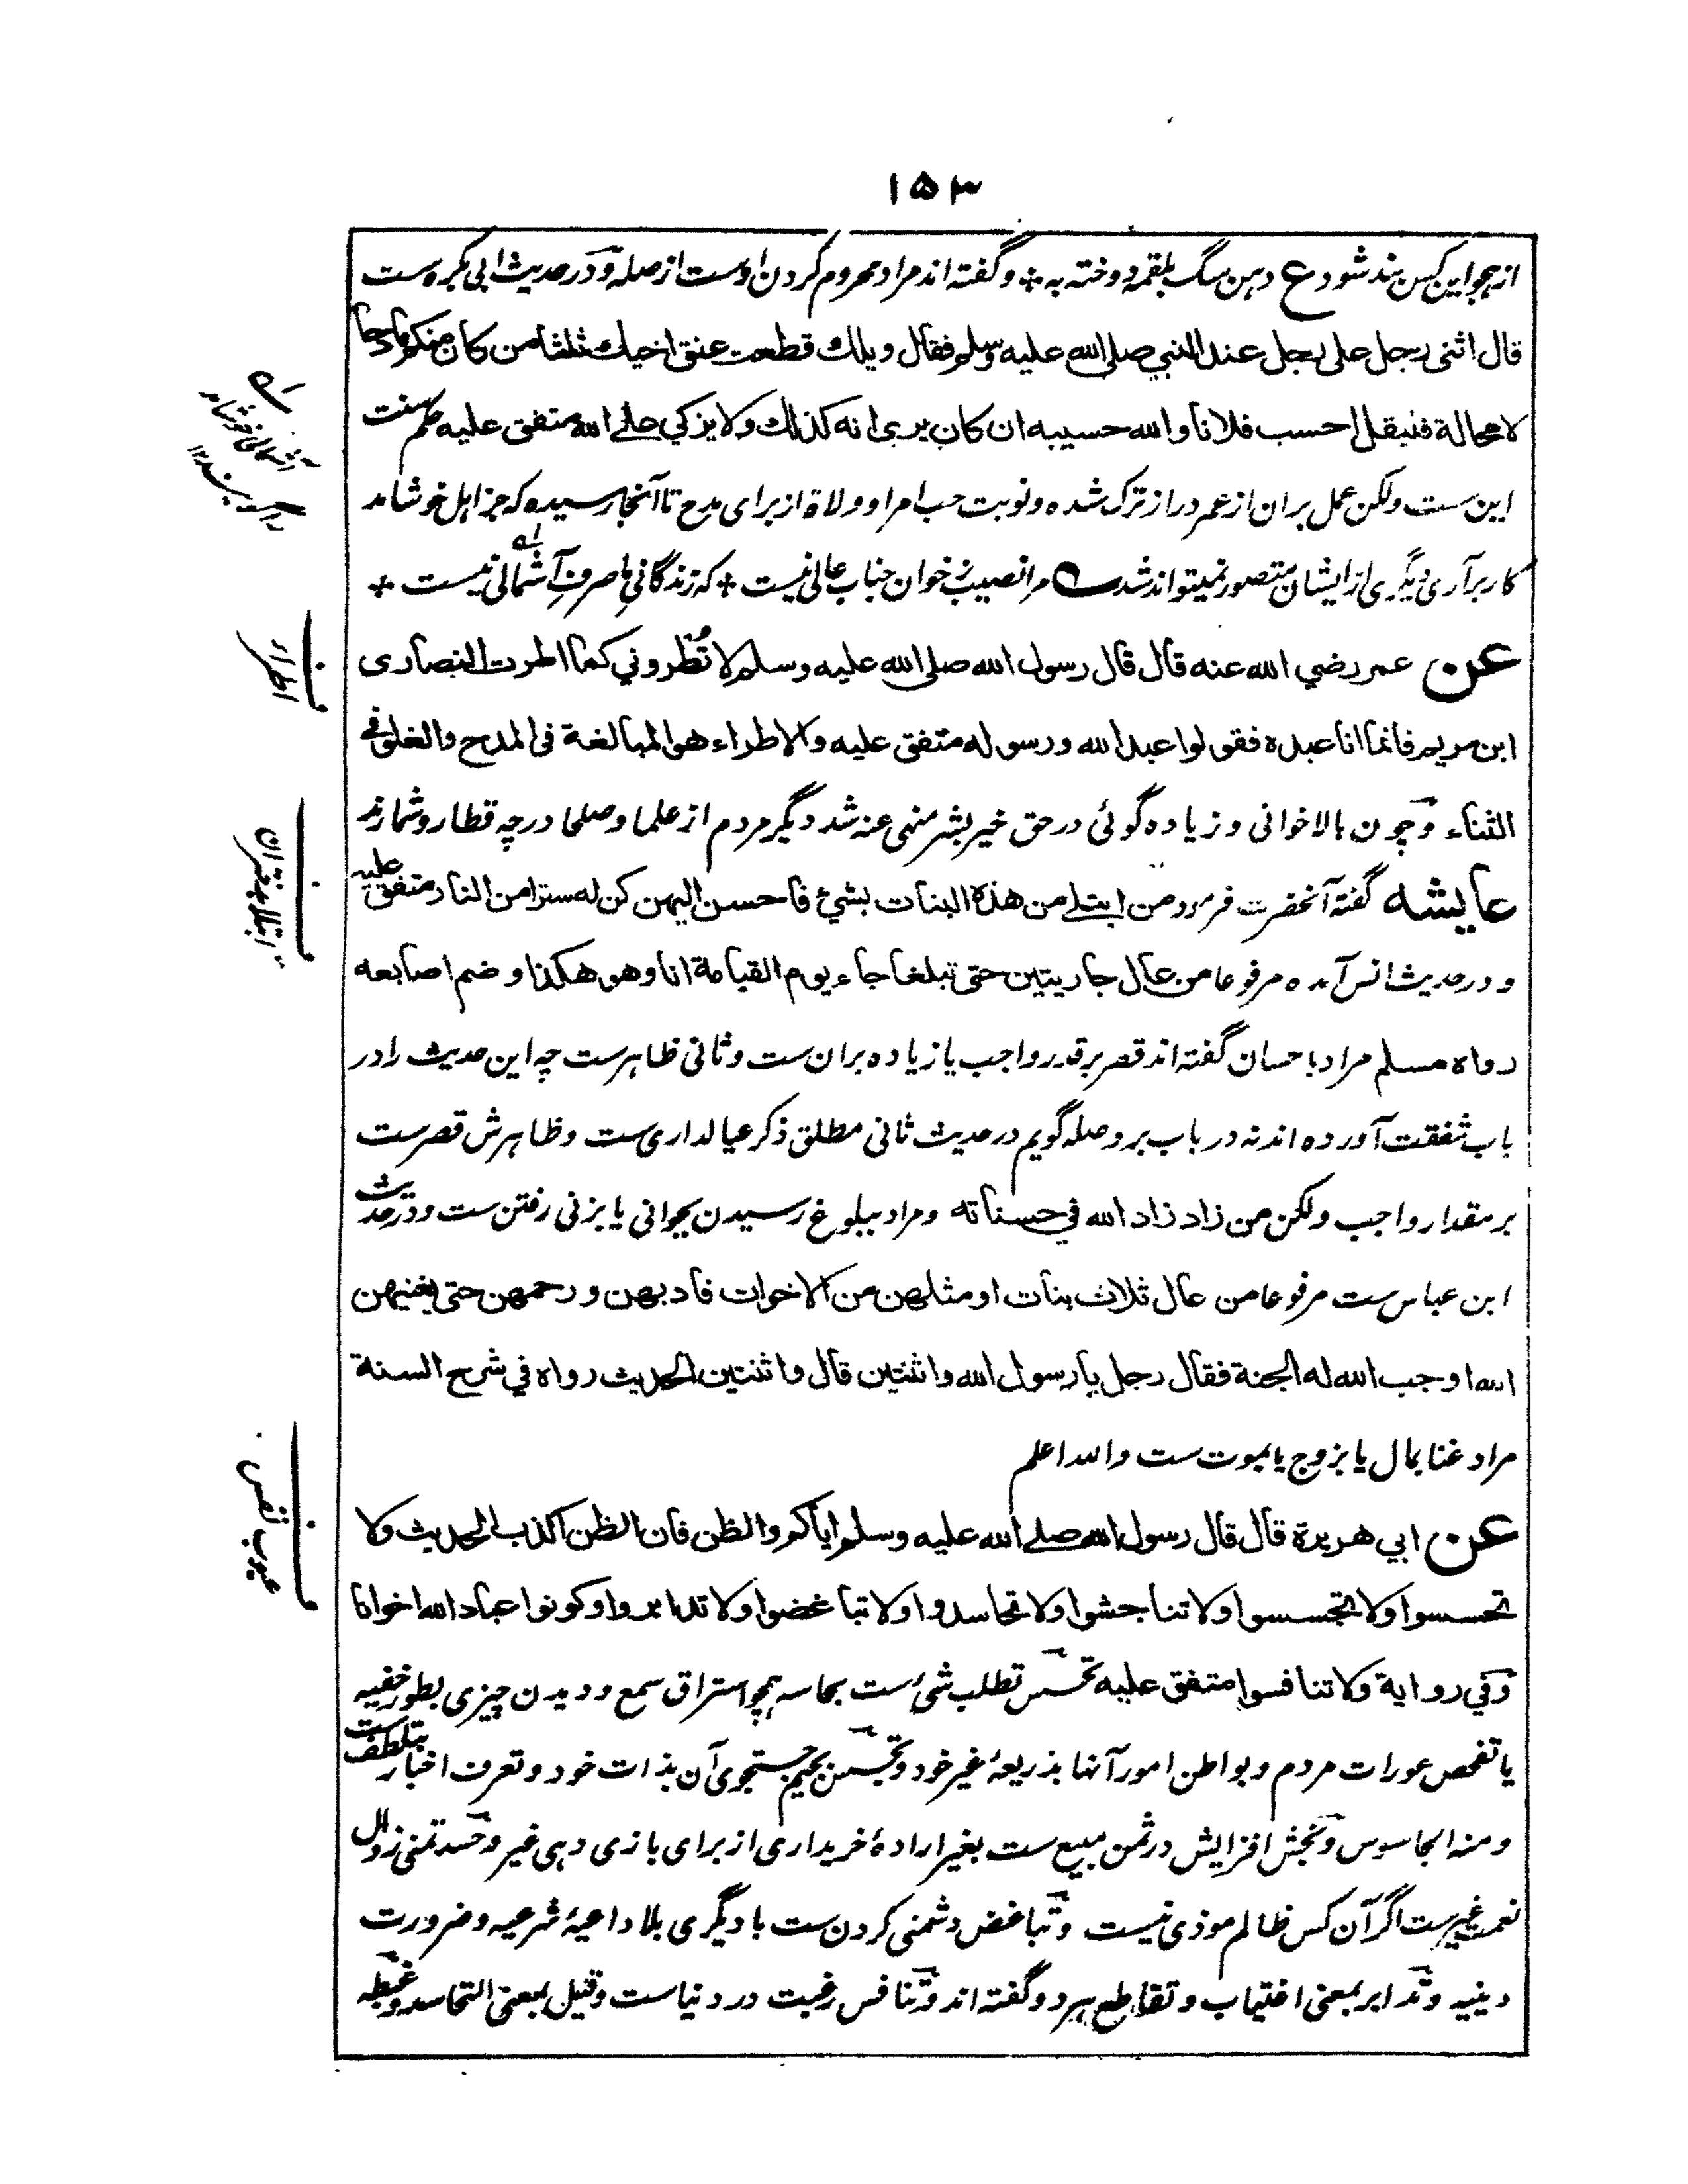 ۱۵۳
از ہجو این کس بند شود ع دہن سگ بلقمہ دوختہ بہ ٭ و گفتہ اند مراد محروم کردن اوست از صلہ و در حدیث ابی بکرہ ست
قال اثنى رجل على رجل عند النبي صلى الله عليه وسلم فقال ويلك قطعت عنق اخيك ثلثا من كان منكم مادحا
لا محالة فليقل احسب فلانا والله حسيبه ان كان يرى انه كذلك ولا يزكي على الله متفق عليه حکم سنت
این ست ولکن عمل بران از عمر دراز ترک شدہ و نوبت حب امرا و ولاة از برای مدح تا آنجا رسیدہ کہ جز اہل خوشامد
کار برآری دیگری از ایشان متصور نمیتواند شد مرا نصیب ز خوان جناب عالی نیست ٭ کہ زندگانی ما صرفِ آشمالی نیست ٭
عن عمر رضي الله عنه قال قال رسول الله صلى الله عليه وسلم لا تُطروني كما اطرت النصارى
ابن مريم فانما انا عبده فقولوا عبد الله ورسوله متفق عليه والاطراء هو المبالغة فى المدح والغلو فے
الثناء و چون بالاخوانی و زیادہ گوئی در حق خیر بشر منہی عنہ شد دیگر مردم از علما و صلحا در چہ قطار و شمارند
عایشہ گفتہ آنحضرت فرمود من ابتلے من هذه البنات بشئ فاحسن اليهن كن له سترا من النار متفق عليه
و در حدیث انس آمدہ مرفوعا من عال جاريتين حتى تبلغا جاء يوم القيامة انا وهو هكذا وضم اصابعه
رواه مسلم مراد باحسان گفتہ اند قصر بر قدر واجب یا زیادہ بران ست و ثانی ظاہرست چہ این حدیث را در
باب شفقت آوردہ اند نہ در باب بر و صلہ گویم در حدیث ثانی مطلق ذکر عیالداری ست و ظاہرش قصرست
بر مقدار واجب ولکن من زاد زاد الله في حسناته و مراد ببلوغ رسیدن بجوانی یا بزنی رفتن ست و در حدیث
ابن عباس ست مرفوعا من عال ثلاث بنات او مثلهن من الاخوات فادبهن ورحمهن حتى يغنيهن
الله اوجب الله له الجنة فقال رجل يا رسول الله واثنتين قال واثنتين الحديث رواه في شرح السنة
مراد غنا بمال یا بزوج یا بموت ست واللہ اعلم
عن ابي هريرة قال قال رسول الله صلے الله عليه وسلم اياكم والظن فان الظن اكذب الحديث ولا
تحسسوا ولا تجسسوا ولا تناجشوا ولا تحاسدوا ولا تباغضوا ولا تدابروا وكونوا عباد الله اخوانا
وفي رواية ولا تنافسوا متفق عليه تحسس تطلب شئ ست بحاسہ ہمچو استراق سمع و دیدن چیزی بطور خفیہ
یا تفحص عورات مردم و بواطن امور آنہا بذریعۂ غیر خود و تجسس بجیم جستجوی آن بذات خود و تعرف اخبار بتلطف ست
و منہ الجاسوس و نجش افزایش در ثمن مبیع ست بغیر ارادۂ خریداری از برای بازی دہی غیر و حسد تمنی زوال
نعمت غیرست اگر آن کس ظالم موذی نیست و تباغض دشمنی کردن ست با دیگری بلا داعیۂ شرعیہ و ضرورت
دینیہ و تدابر بمعنی اغتیاب و تقاطع ہر دو گفتہ اند و تنافس رغبت در دنیاست و قیل بمعنی التحاسد و غبطہ
اطراء
ابتلا بدختران
عیوب نفس